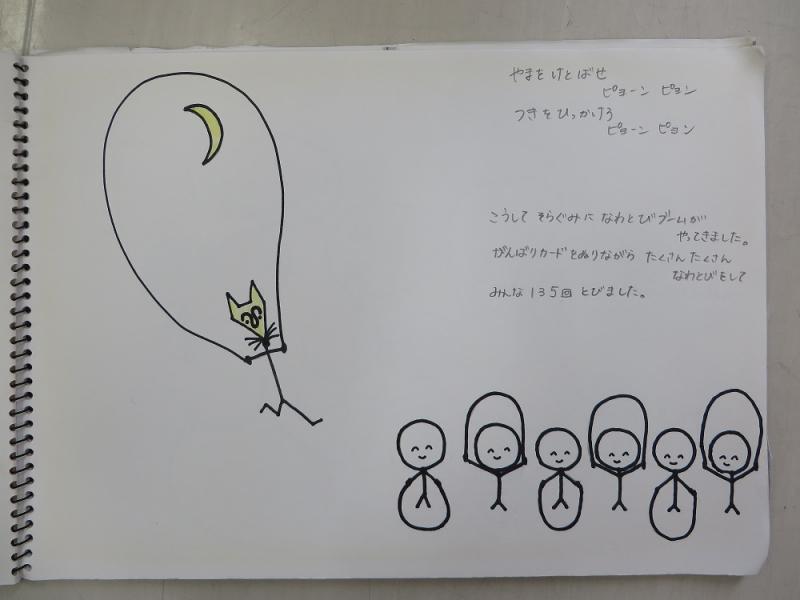 やまを けとばせ
ピョーン ピョン
つきを ひっかけろ
ピョーン ピョン
こうして そらぐみに なわとびブームが
やってきました。
がんばりカードをぬりながら たくさん たくさん
なわとびをして
みんな 135回 とびました。